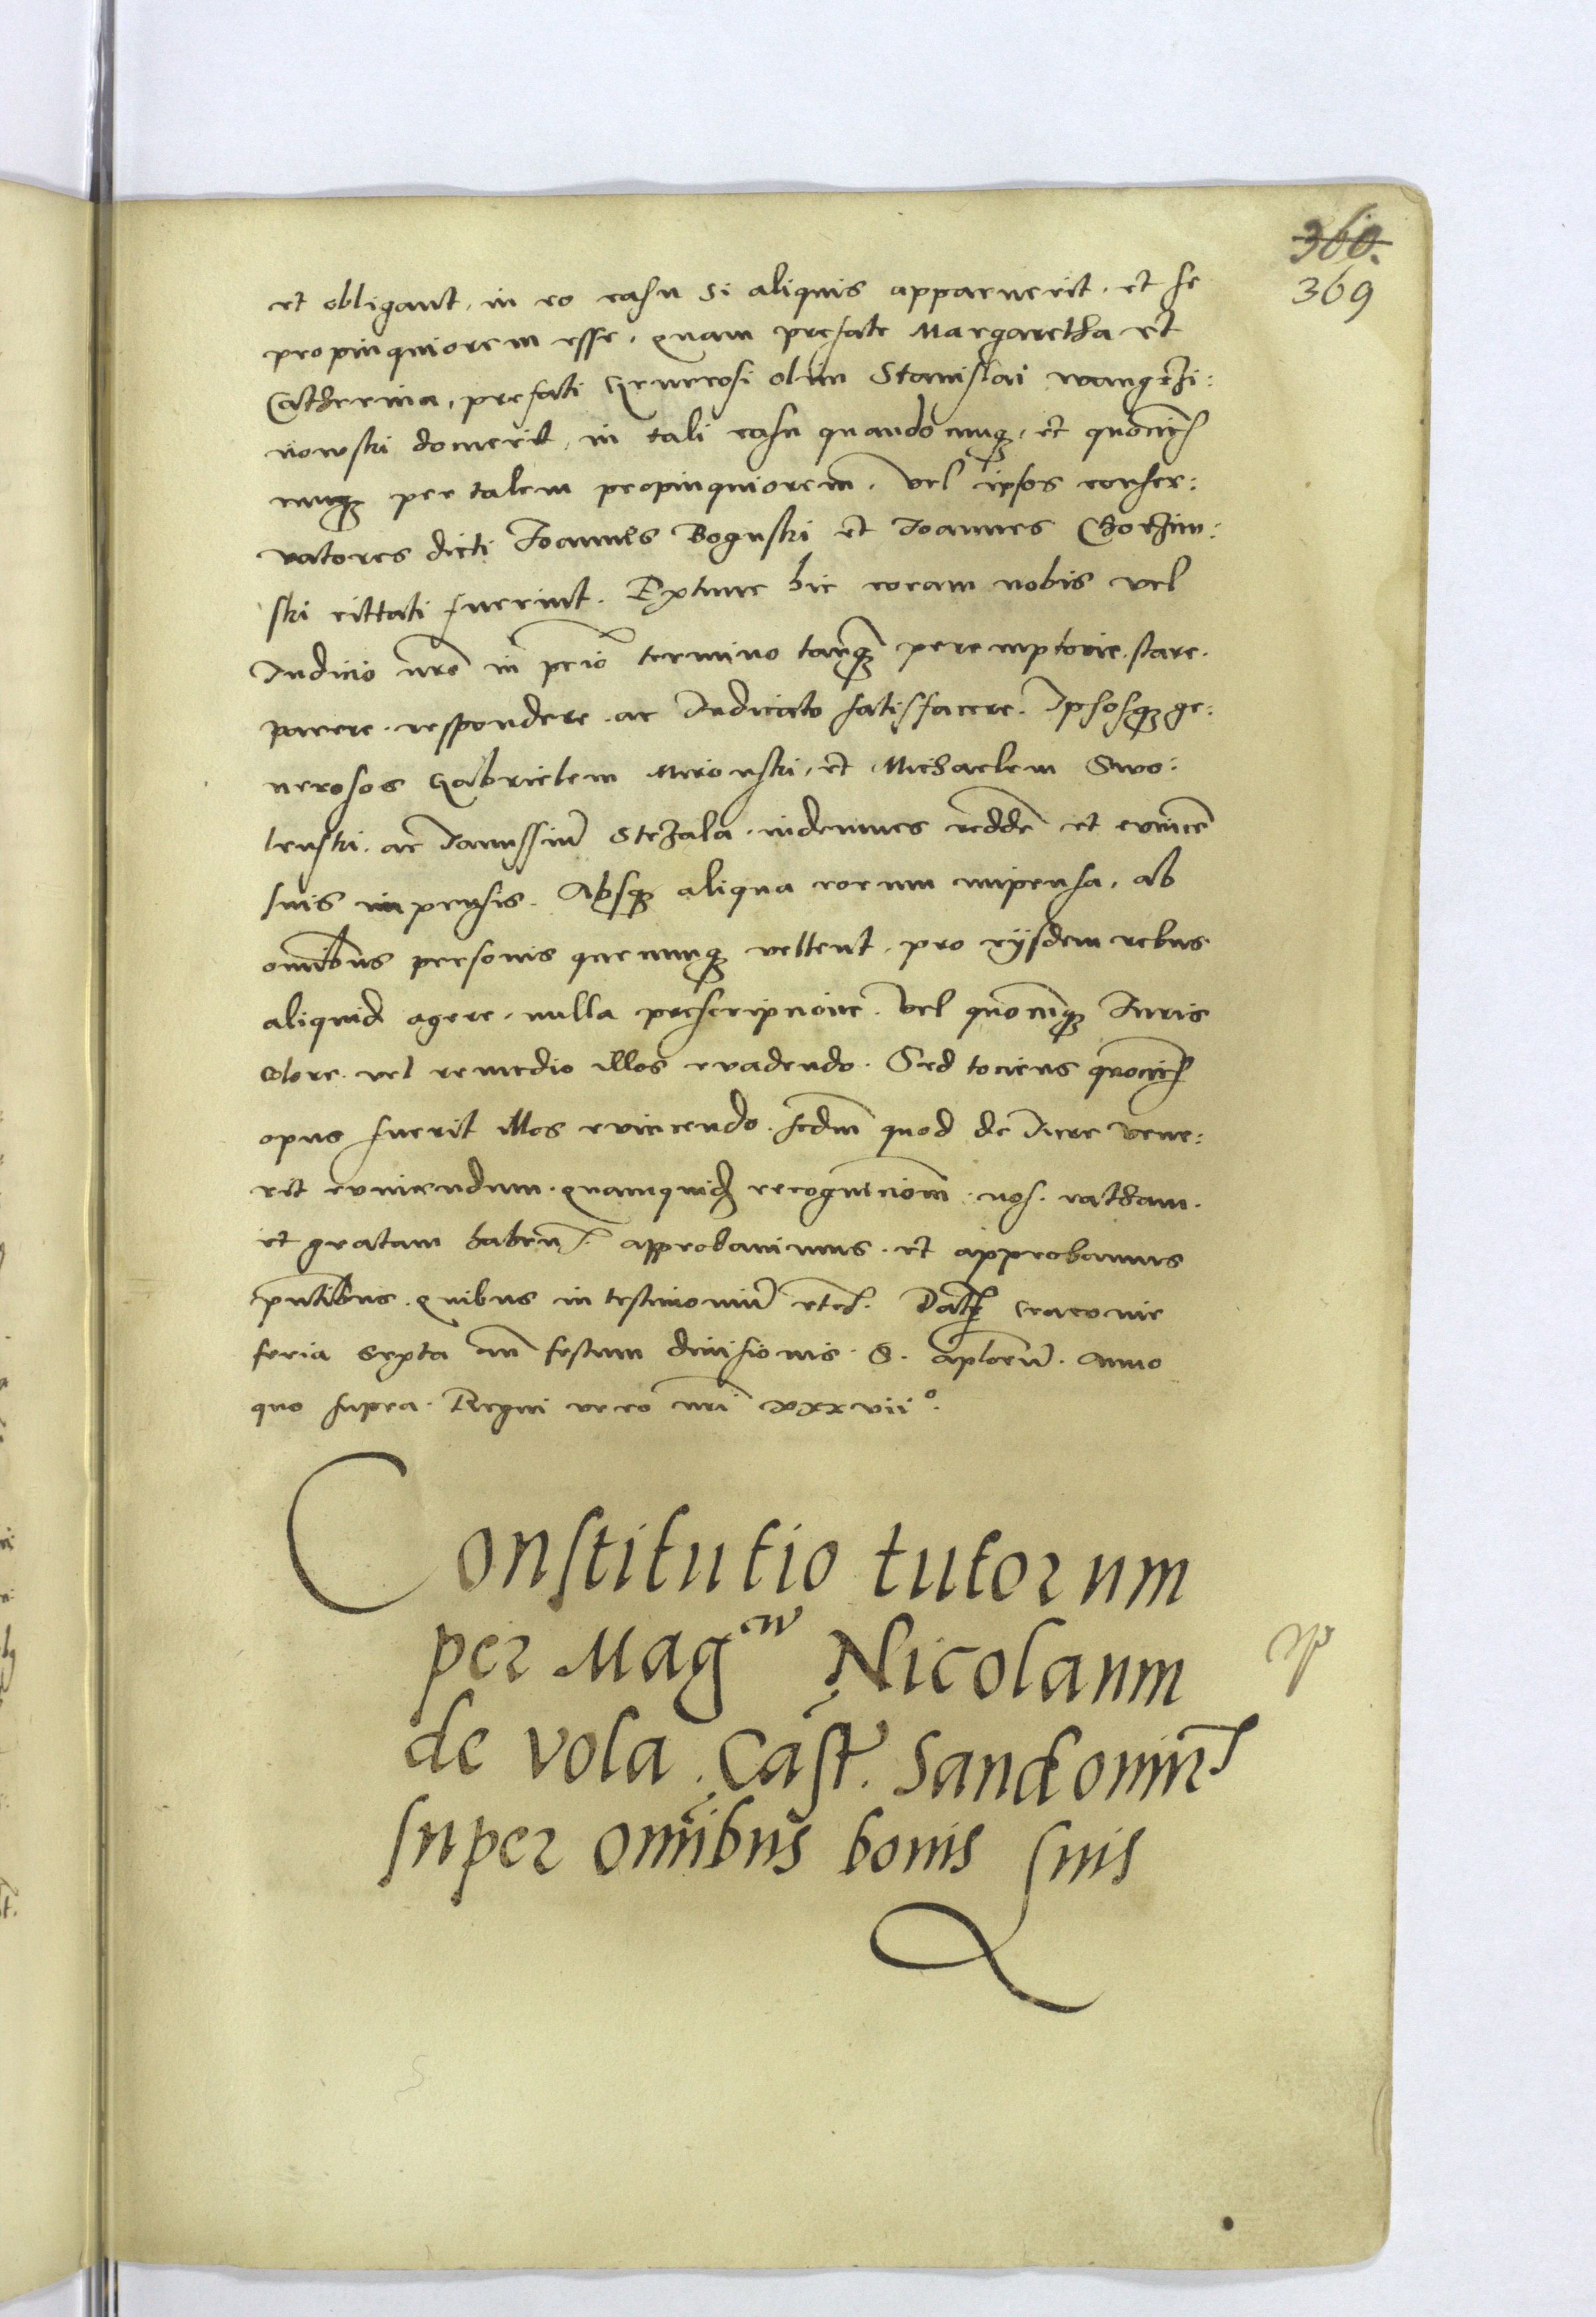 360.
369
et obligant, in eo casu si aliquis apparuerit, et se
propinquiorem esse, quam prefate Margaretha et
Catherina, prefati Generosi olim Stanislai wangrzi:
nowski docuerit, in tali casu quandocunq3, et quociēs
cunq3 per talem propinquiorem, vel ipsos conser:
vatores dicti Joannes Boguski et Joannes Chorzew:
ski cittati fuerint. Extunc hic coram nobis vel
Judicio nr̄o in p̄rio termino tanq3 peremptorie stare.
parere. respondere. ac Judicato satisfacere. Ipsosq3 ge:
nerosos Gabrielem Mironski, et Michaelem Swo:
lenski. ac Janussiū Strzala. indemnes redde͞ et evince͞
suis impensis. Absq3 aliqua eorum impensa, ab
om̄ibus personis quecunq3 vellent, pro eijsdem rebus
aliquid agere, nulla prescripcione. Vel quocūq3 Juris
colore. vel remedio illos evadendo. Sed tociens quocieɳ
opus fuerit illos evincendo. scdm̄ quod de Jure vene:
rit evincendum. quamquidē recognicionem. nos. ratham.
et gratam haben̄. approbavimus. et approbamus
p̄ntibus. quibus in testimoniū etc. Dat̄ Cracovie
feria sexta an̄ festum divisionis. S. aplorū. Anno
quo supra. Regni vero nr̄i xxxvii°.
Constitutio tutorum
per Mag^cu^ Nicolaum
de Vola. Cast. Sandomirˀ
super om̄ibus bonis suis